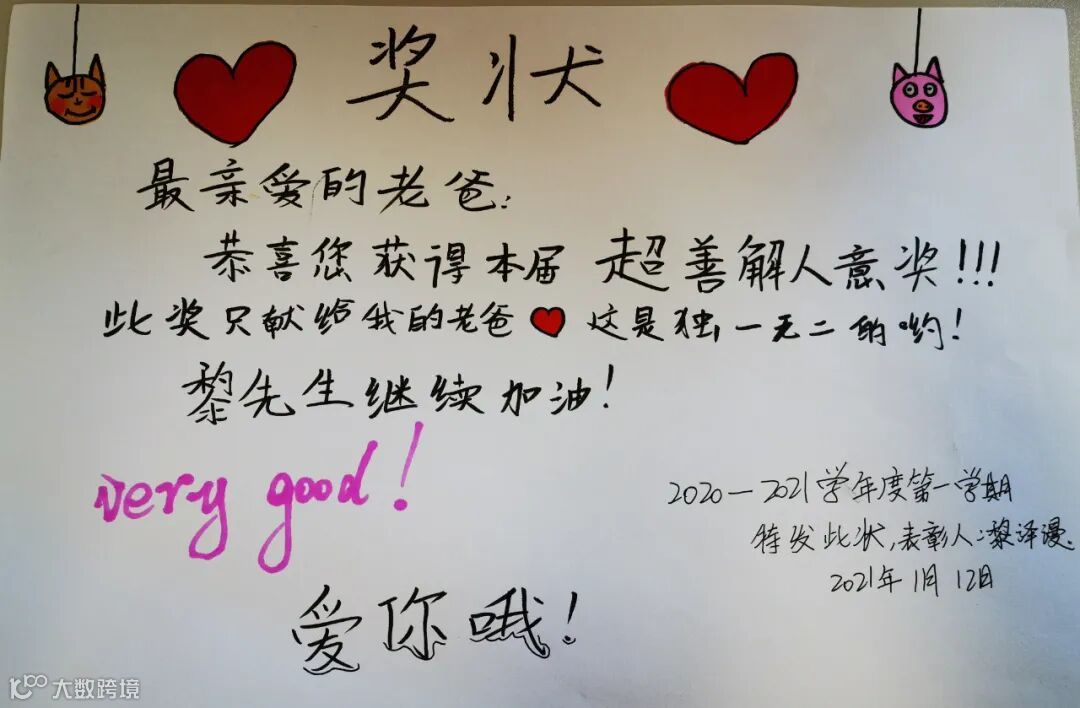 奖状
最亲爱的老爸:
恭喜您获得本届 超善解人意奖!!!
此奖只献给我的老爸 这是独一无二的哟!
黎先生继续加油!
very good!
2020—2021学年度第一学期
特发此状,表彰人:黎泽漫.
2021年1月12日
爱你哦!
大数跨境